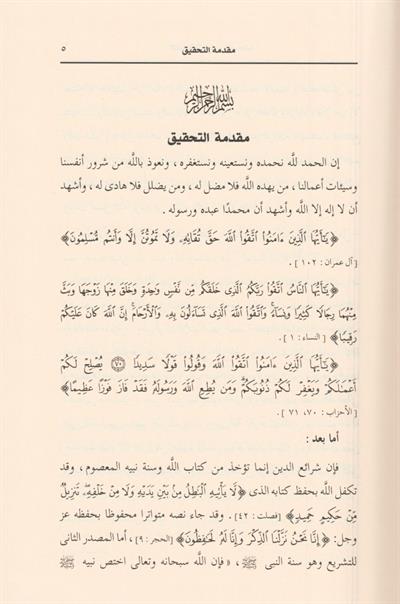 مقدمة التحقيق ٥
بسم الله الرحمن الرحيم
مقدمة التحقيق
إن الحمد لله نحمده ونستعينه ونستغفره ، ونعوذ بالله من شرور أنفسنا
وسيئات أعمالنا ، من يهده الله فلا مضل له ، ومن يضلل فلا هادى له ، وأشهد
أن لا إله إلا الله وأشهد أن محمدًا عبده ورسوله .
﴿ يَٰٓأَيُّهَا الَّذِينَ ءَامَنُوا۟ اتَّقُوا۟ اللَّهَ حَقَّ تُقَالِهِۦ وَلَا تَمُوتُنَّ إِلَّا وَأَنتُم مُّسْلِمُونَ ﴾
[ آل عمران : ١٠٢ ] .
﴿ يَٰٓأَيُّهَا النَّاسُ اتَّقُوا۟ رَبَّكُمُ الَّذِى خَلَقَكُم مِّن نَّفْسٍ وَٰحِدَةٍ وَخَلَقَ مِنْهَا زَوْجَهَا وَبَثَّ
مِنْهُمَا رِجَالًا كَثِيرًا وَنِسَآءً ۚ وَاتَّقُوا۟ اللَّهَ الَّذِى تَسَآءَلُونَ بِهِۦ وَالْأَرْحَامَ ۚ إِنَّ اللَّهَ كَانَ عَلَيْكُمْ
رَقِيبًا ﴾ [ النساء : ١ ] .
﴿ يَٰٓأَيُّهَا الَّذِينَ ءَامَنُوا۟ اتَّقُوا۟ اللَّهَ وَقُولُوا۟ قَوْلًا سَدِيدًا ٧٠ يُصْلِحْ لَكُمْ
أَعْمَٰلَكُمْ وَيَغْفِرْ لَكُمْ ذُنُوبَكُمْ ۗ وَمَن يُطِعِ اللَّهَ وَرَسُولَهُۥ فَقَدْ فَازَ فَوْزًا عَظِيمًا ﴾
[ الأحزاب : ٧٠ ، ٧١ ] .
أما بعد :
فإن شرائع الدين إنما تؤخذ من كتاب الله وسنة نبيه المعصوم ، وقد
تكفل الله بحفظ كتابه الذى ﴿ لَّا يَأْتِيهِ الْبَٰطِلُ مِنۢ بَيْنِ يَدَيْهِ وَلَا مِنْ خَلْفِهِۦ ۖ تَنزِيلٌ
مِّنْ حَكِيمٍ حَمِيدٍ ﴾ [ فصلت : ٤٢ ] . وقد جاء نصه متواترا محفوظا بحفظه عز
وجل : ﴿ إِنَّا نَحْنُ نَزَّلْنَا الذِّكْرَ وَإِنَّا لَهُۥ لَحَٰفِظُونَ ﴾ [ الحجر : ٩ ] ، أما المصدر الثانى
للتشريع وهو سنة النبى ﷺ ، « فإن الله سبحانه وتعالى اختص نبيه ﷺ